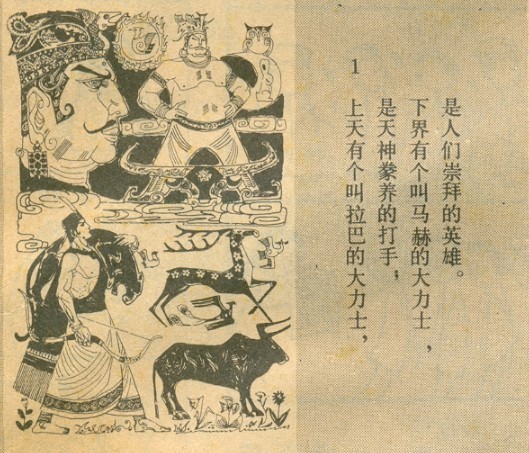 1
上天有个叫拉巴的大力士，
是天神豢养的打手，
下界有个叫马赫的大力士，
是人们崇拜的英雄。